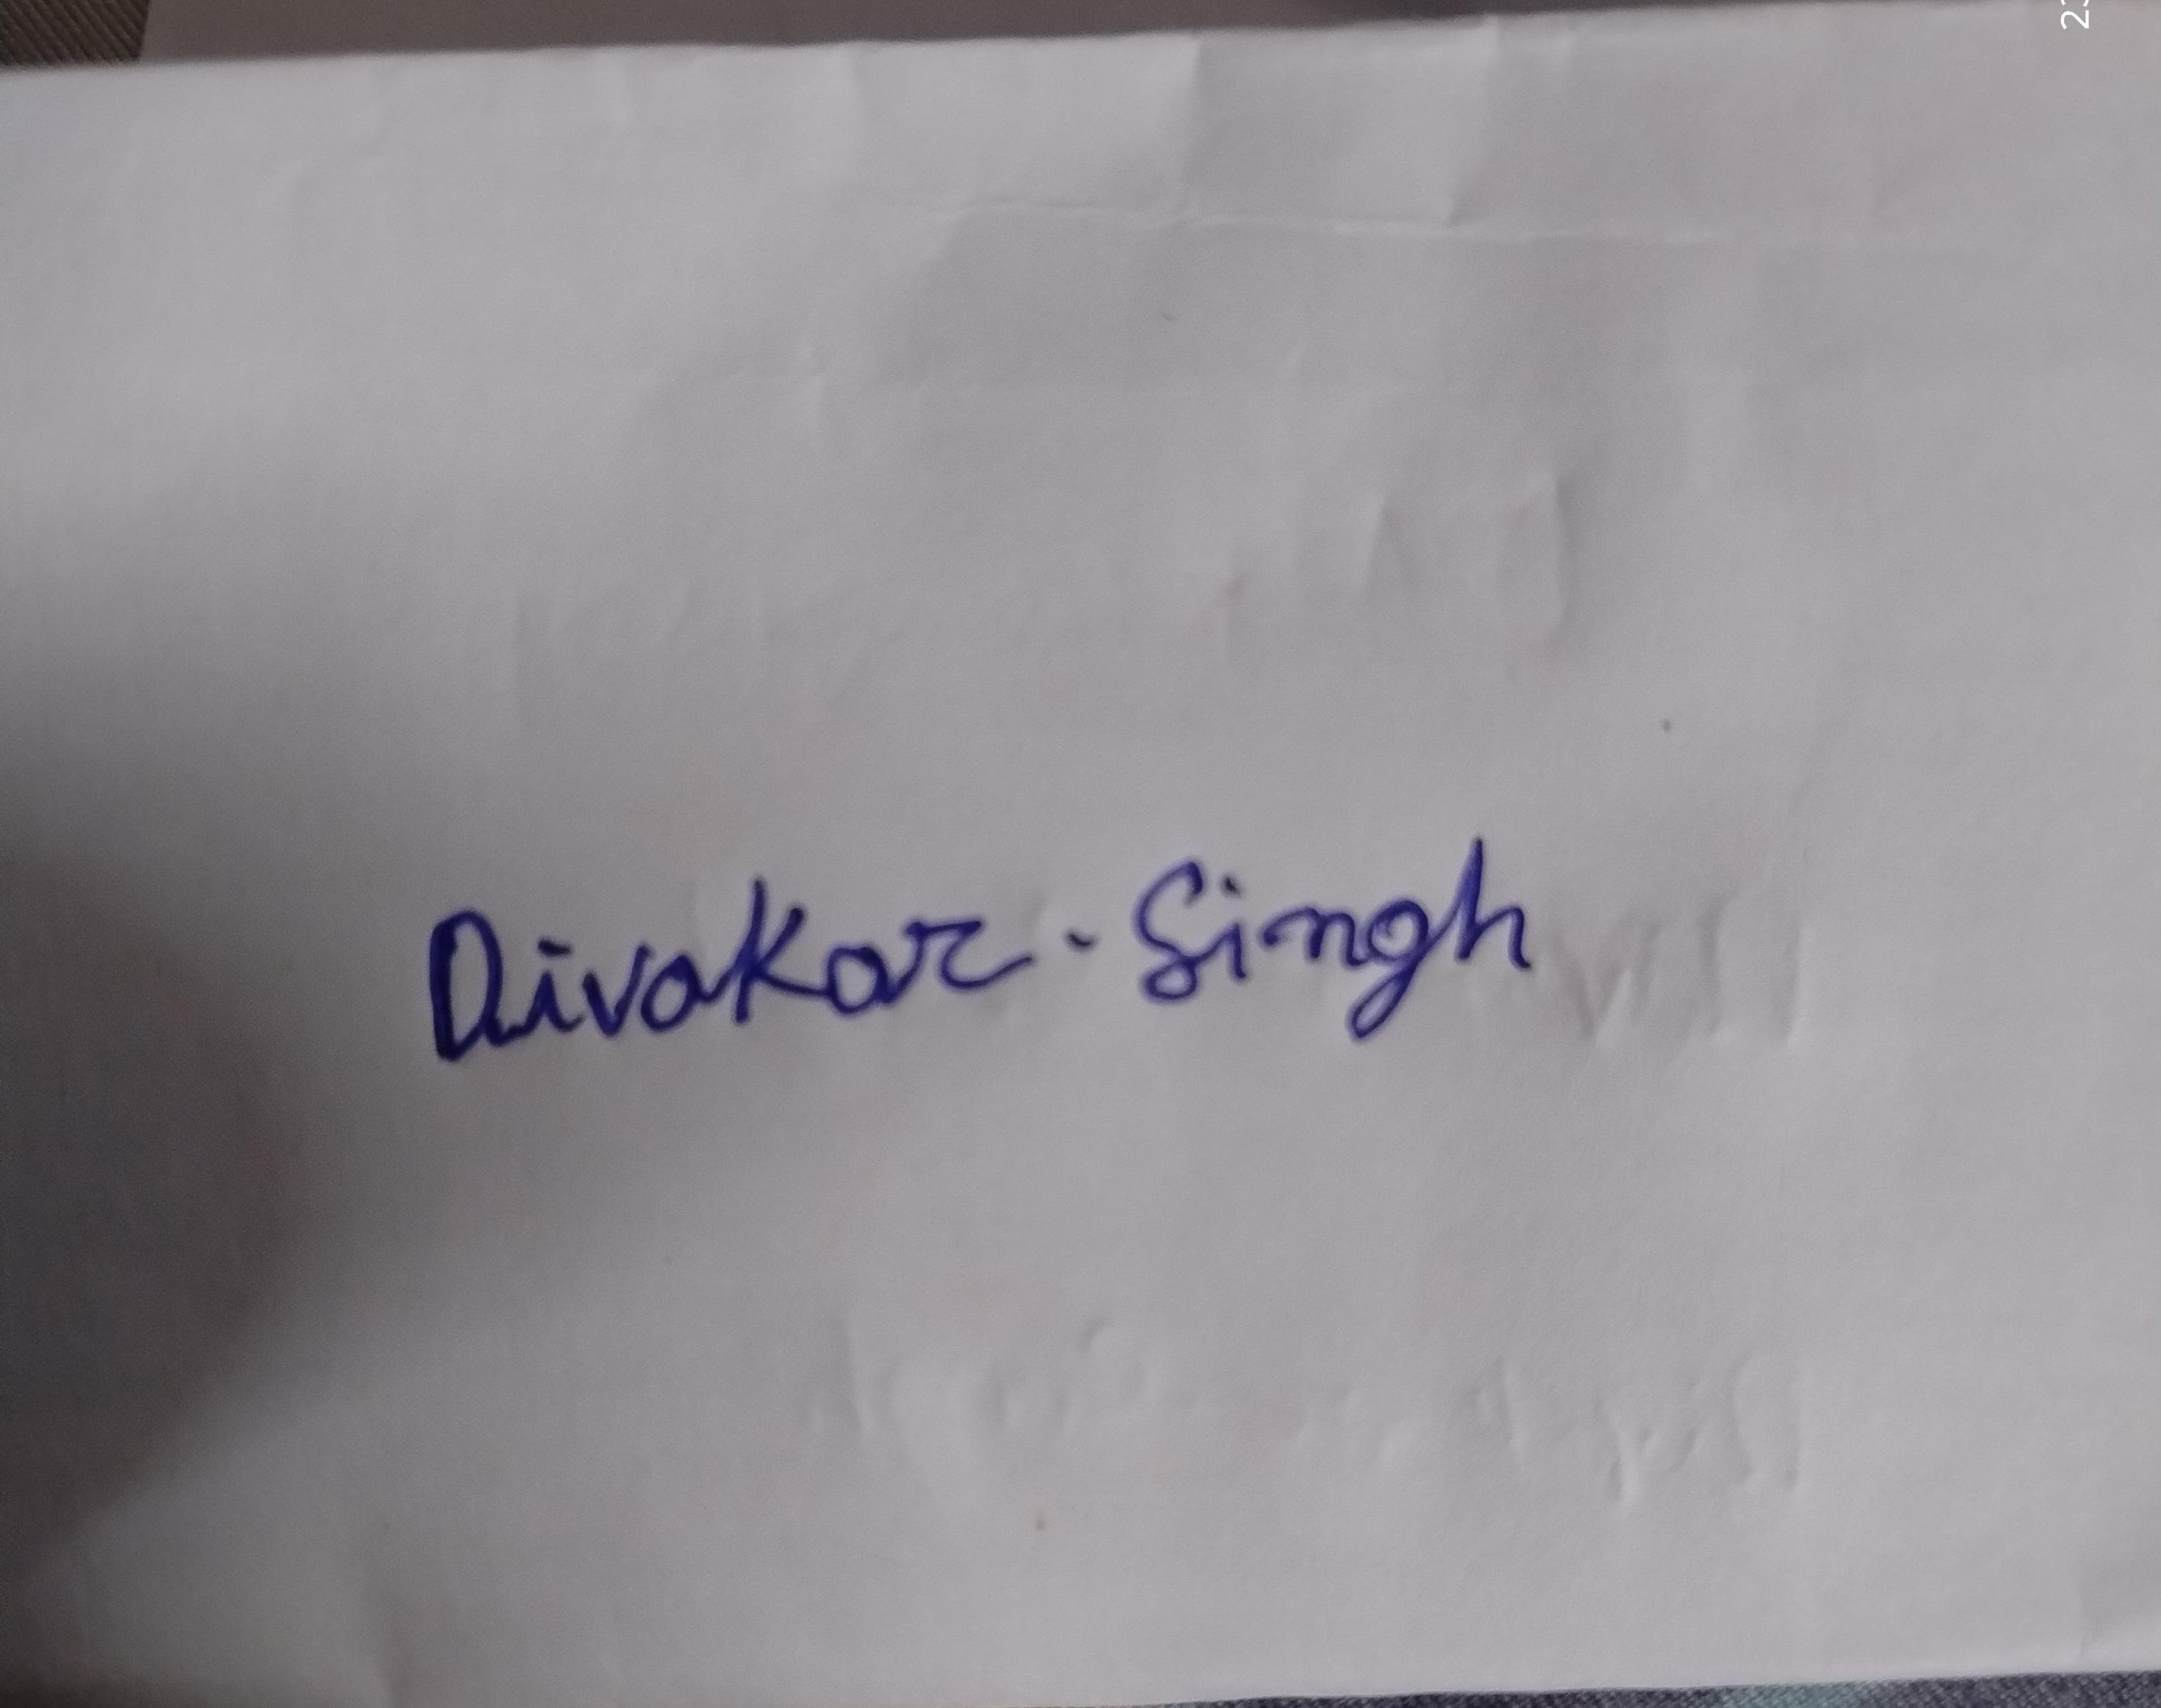 Divakar. Singh